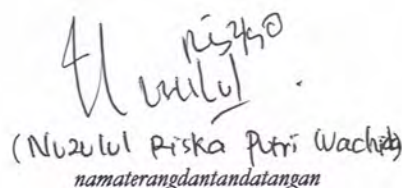 (Nuzulul Riska Putri Wachid)
namaterangdantandatangan